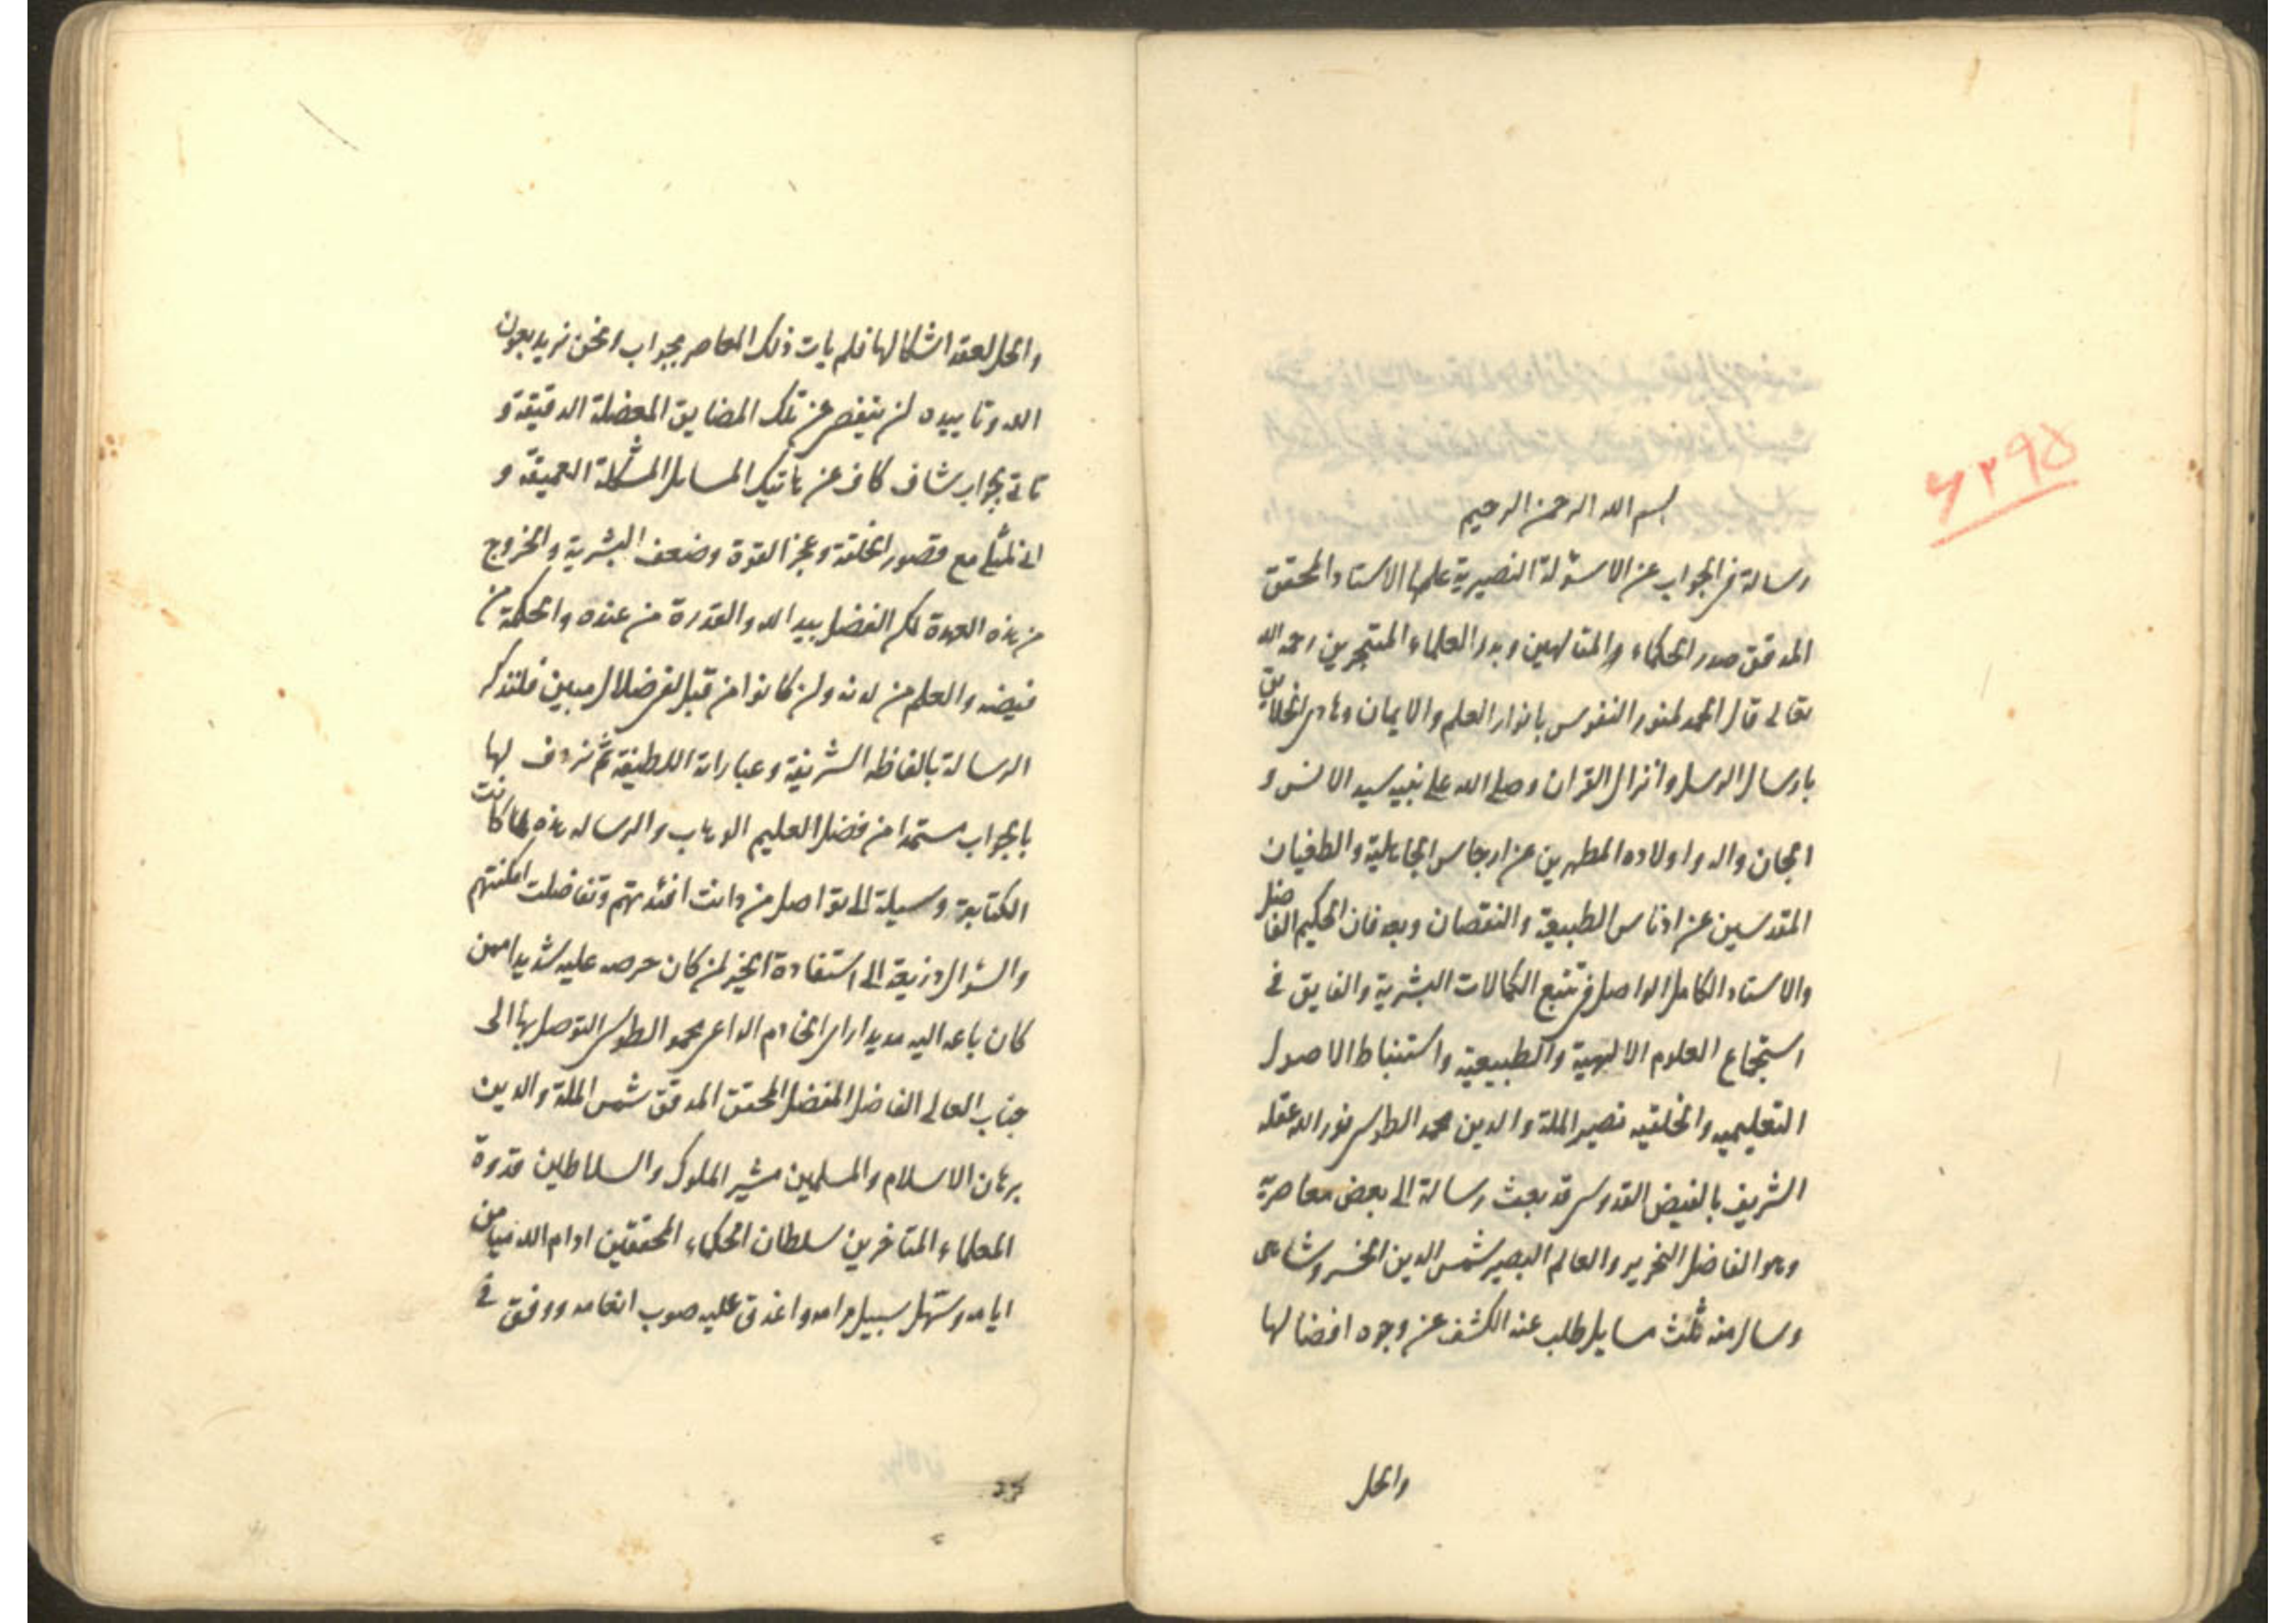 ٦٢٩٥
بسم الله الرحمن الرحيم
رسالة فى الجواب عن الاسئولة النصيرية علمها الاستاد المحقق
المدقق صدر الحكماء والمتالهين وبدر العلماء المتبحرين رحمه الله
تعالى قال الحمد لمنور النفوس بانوار العلم والايمان وهادى الخلايق
بارسال الرسل وانزال القران وصلى الله على نبيه سيد الانس و
الجان واله واولاده المطهرين عن ارجاس الجاهلية والطغيان
المقدسين عن ادناس الطبيعة والنقصان وبعد فان الحكيم الفاضل
والاستاد الكامل الواصل فى تتبع الكمالات البشرية والفايق فى
استجماع العلوم الالهية والطبيعية واستنباط الاصول
التعليميه والخلقيه نصير الملة والدين محمد الطوسى نور الله عقله
الشريف بالفيض القدوسى قد بعث رسالة الى بعض معاصرية
وهو الفاضل النحرير والعالم البصير شمس الدين الخسروشاهى
وسال منه ثلث مسايل طلب عنه الكشف عن وجوه اعضالها
والحل
والحل لعقد اشكالها فلم يات ذلك المعاصر بجواب ونحن نريد بعون
الله وتاييده ان يتفصى عن تلك المضايق المعضلة الدقيقة و
ناتى بجواب شاف كاف عن هاتيك المسايل المشكلة العميقة و
انى لمثلى مع قصور الخلقة وعجز القوة وضعف البشرية والخروج
من هذه العهدة لكن الفضل بيد الله والقدرة من عنده والحكمة من
فيضه والعلم من لدنه وان كانوا من قبل لفى ضلال مبين فلنذكر
الرسالة بالفاظه الشريفة وعباراته اللطيفة ثم نردف لها
بالجواب مستمدا من فضل العليم الوهاب والرساله هذه لما كانت
الكتابة وسيلة الى تواصل من دانت افئدتهم وتفاضلت امكنتهم
والسؤال ذريعة الى استفادة الخير لمن كان حرصه عليه شديدا ومن
كان باعه اليه مديدا راى الخادم الداعى محمد الطوسى التوصل بها الى
جناب العالى الفاضل المفضل المحقق المدقق شمس الملة والدين
برهان الاسلام والمسلمين مشير الملوك والسلاطين قدوة
العلماء المتاخرين سلطان الحكماء المحققين ادام الله ميامن
ايامه وسهل سبيل مرامه واغدق عليه صوب انعامه ووفق فى